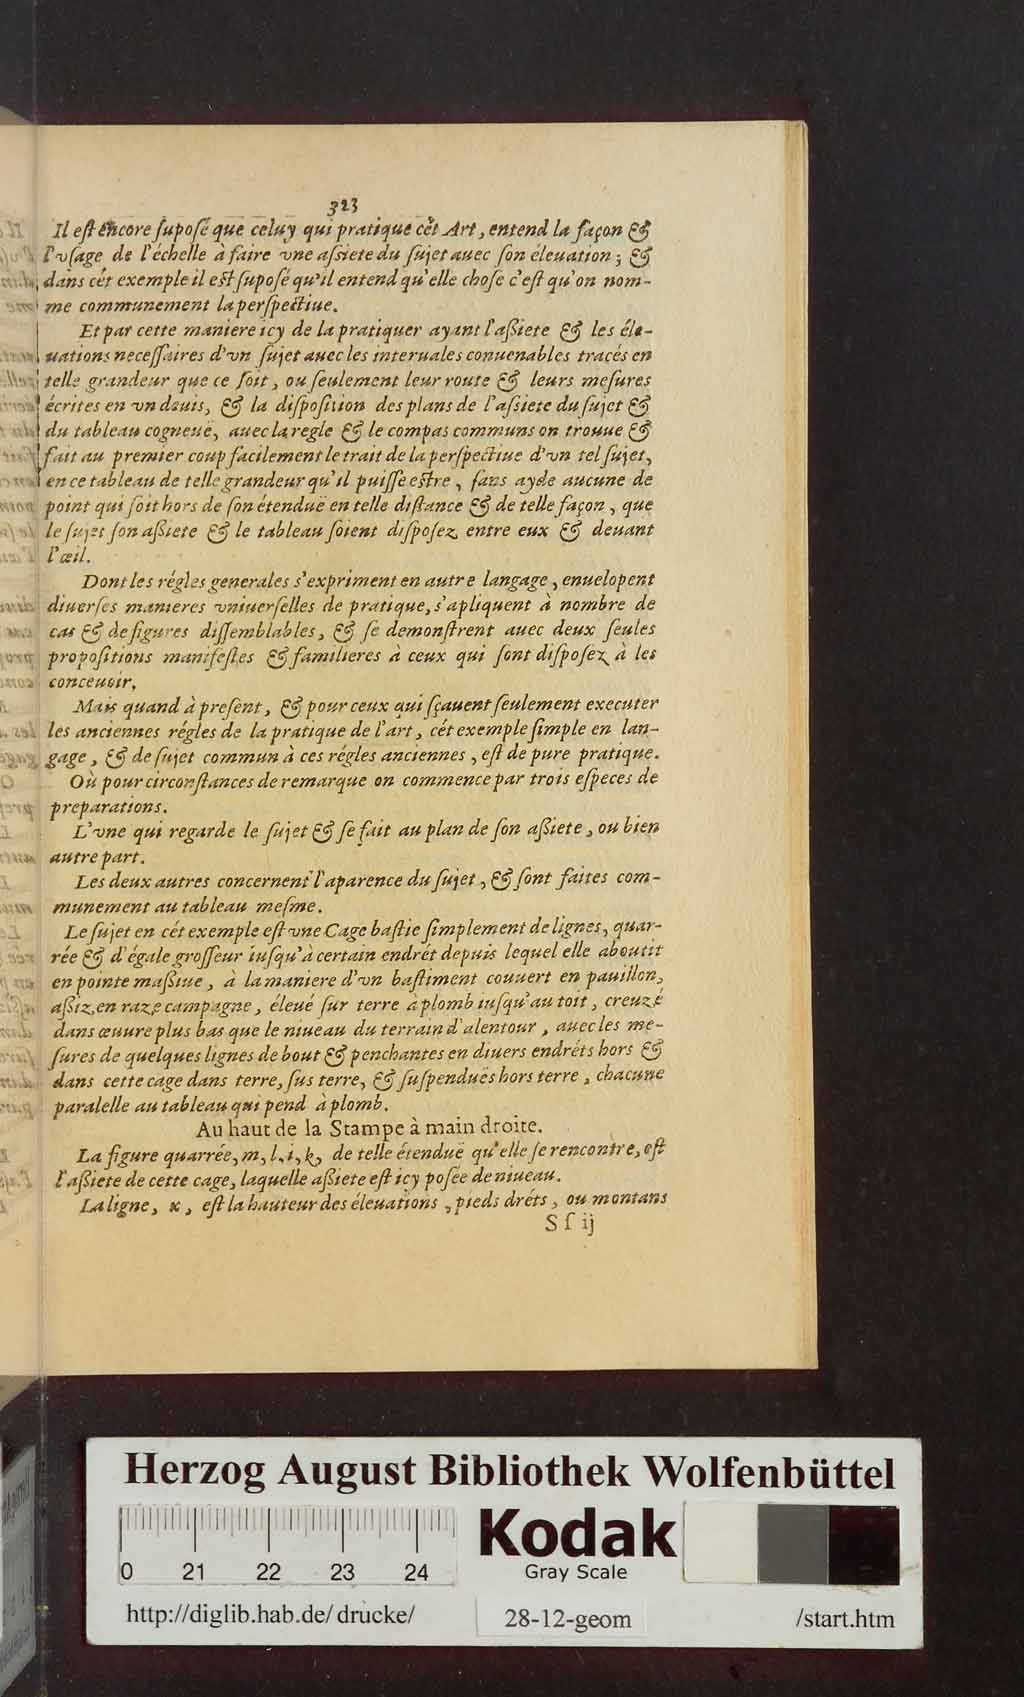 323
Il eſt encore ſupoſé que celuy qui pratique cét Art, entend la façon &
l'vſage de l'échelle à faire vne aſsiete du ſujet auec ſon éleuation ; &
dans cét exemple il eſt ſupoſé qu'il entend qu'elle choſe c'eſt qu'on nom-
me communement la perſpectiue.
Et par cette maniere icy de la pratiquer ayant l'aſsiete & les éle-
uations neceſſaires d'vn ſujet auec les interuales conuenables tracés en
telle grandeur que ce ſoit, ou ſeulement leur route & leurs meſures
écrites en vn deuis, & la diſpoſition des plans de l'aſsiete du ſujet &
du tableau cogneuë, auec la regle & le compas communs on trouue &
fait au premier coup facilement le trait de la perſpectiue d'vn tel ſujet,
en ce tableau de telle grandeur qu'il puiſſe eſtre, ſans ayde aucune de
point qui ſoit hors de ſon étenduë en telle diſtance & de telle façon, que
le ſujet ſon aſsiete & le tableau ſoient diſpoſez entre eux & deuant
l'œil.
Dont les régles generales s'expriment en autre langage, enuelopent
diuerſes manieres vniuerſelles de pratique, s'apliquent à nombre de
cas & de figures diſſemblables, & ſe demonſtrent auec deux ſeules
propoſitions manifeſtes & familieres à ceux qui ſont diſpoſez à les
conceuoir.
Mais quand à preſent, & pour ceux qui ſçauent ſeulement executer
les anciennes régles de la pratique de l'art, cét exemple ſimple en lan-
gage, & de ſujet commun à ces régles anciennes, eſt de pure pratique.
Où pour circonſtances de remarque on commence par trois eſpeces de
preparations.
L'vne qui regarde le ſujet & ſe fait au plan de ſon aſsiete, ou bien
autre part.
Les deux autres concernent l'aparence du ſujet, & ſont faites com-
munement au tableau meſme.
Le ſujet en cét exemple eſt vne Cage baſtie ſimplement de lignes, quar-
rée & d'égale groſſeur iuſqu'à certain endrét depuis lequel elle aboutit
en pointe maſsiue, à la maniere d'vn baſtiment couuert en pauillon,
aſsiz en raze campagne, éleué ſur terre à plomb iuſqu'au toit, creuzé
dans œuure plus bas que le niueau du terrain d'alentour, auec les me-
ſures de quelques lignes de bout & penchantes en diuers endréts hors &
dans cette cage dans terre, ſus terre, & ſuſpenduës hors terre, chacune
paralelle au tableau qui pend à plomb.
Au haut de la Stampe à main droite.
La figure quarrée, m, l, i, k, de telle étenduë qu'elle ſe rencontre, eſt
l'aſsiete de cette cage, laquelle aſsiete eſt icy poſée de niueau.
La ligne, x, eſt la hauteur des éleuations, pieds dréts, ou montans
S ſ ij
Herzog August Bibliothek Wolfenbüttel
0 21 22 23 24
Kodak
Gray Scale
http://diglib.hab.de/drucke/ 28-12-geom /start.htm